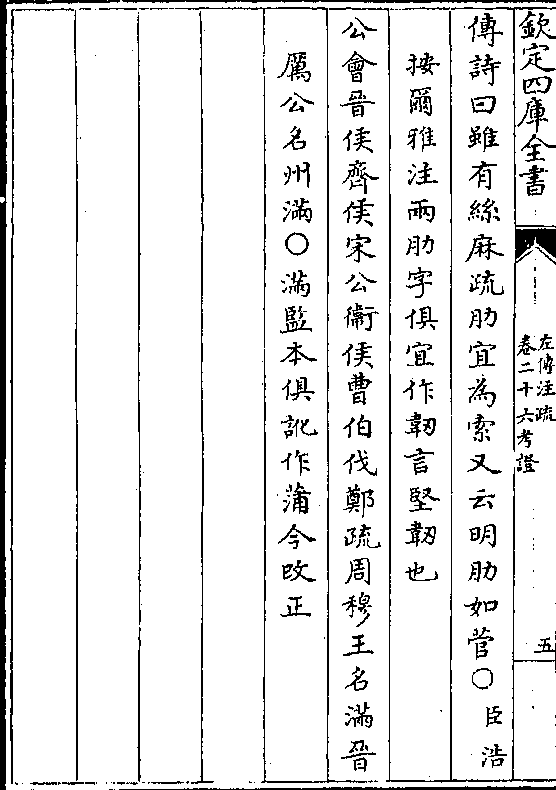 欽定四庫全書
左傳注疏
卷二十六考證
五
傳詩曰雖有絲麻疏肋宜為索又云明肋如菅○臣浩
按爾雅注兩肋字俱宜作韌言堅韌也
公會晉侯齊侯宋公衞侯曹伯伐鄭疏周穆王名滿晉
厲公名州滿○滿監本俱訛作蒲今改正